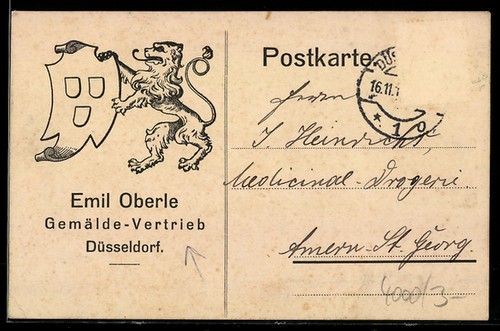 Emil Oberle
Gemälde-Vertrieb
Düsseldorf.
Postkarte
16.11.1
* 1 o.
Herrn
J. Heinrichs,
Medicinal-Drogerie.
Amern-St. Georg.
4000/3-